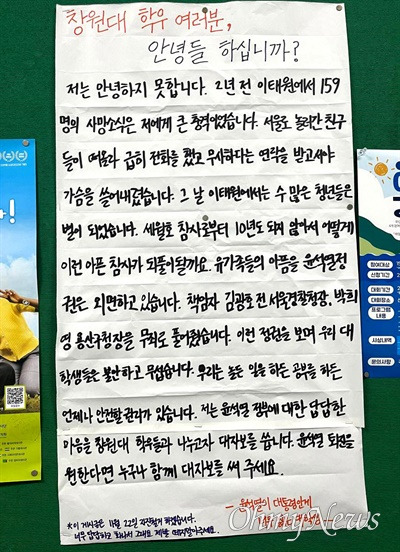 창원대 학우 여러분,
안녕들 하십니까?
저는 안녕하지 못합니다. 2년 전 이태원에서 159
명의 사망소식은 저에게 큰 충격이었습니다. 서울로 놀러간 친구
들이 떠올라 급히 전화를 했고 무사하다는 연락을 받고서야
가슴을 쓸어내렸습니다. 그 날 이태원에서는 수 많은 청년들은
별이 되었습니다. 세월호 참사로부터 10년도 되지 않아서 어떻게
이런 아픈 참사가 되풀이될까요. 유가족들의 아픔을 윤석열정
권은 외면하고 있습니다. 책임자 김광호 전 서울경찰청장, 박희
영 용산구청장을 무죄로 풀어줬습니다. 이런 정권을 보며 우리 대
학생들은 불안하고 무섭습니다. 우리는 놀든 일을 하든 공부를 하든
언제나 안전할 권리가 있습니다. 저는 윤석열 정부에 대한 답답한
마음을 창원대 학우들과 나누고자 대자보를 씁니다. 윤석열 퇴진을
원한다면 누구나 함께 대자보를 써 주세요.
- 윤석열이 대통령인게
*이 게시글은 11월 22일 자진철거 하겠습니다.
너무 답답하고 화나서 그래요. 제발 떼지말아주세요.
OhmyNews
참여대상
신청기간
대회기간
대회장소
프로그램
내용
시상내역
문의사항